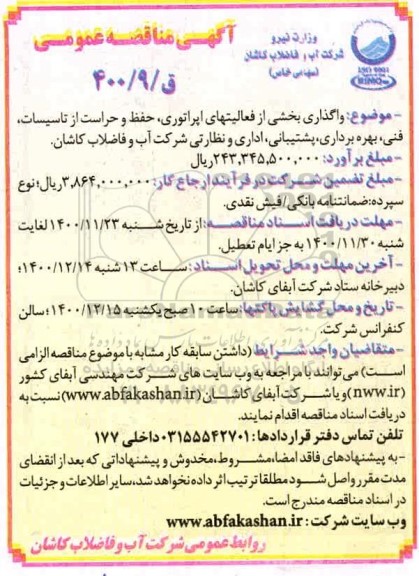 آگهی مناقصه عمومی
وزارت نیرو
شرکت آب و فاضلاب کاشان
(سهامی خاص)
ISO 9001
ق/۴۰۰/۹
- موضوع: واگذاری بخشی از فعالیتهای اپراتوری، حفظ و حراست از تاسیسات،
فنی، بهره برداری، پشتیبانی، اداری و نظارتی شرکت آب و فاضلاب کاشان.
- مبلغ برآورد: ۲۴۳,۳۴۵,۵۰۰,۰۰۰ ریال
- مبلغ تضمین شرکت در فرآیند ارجاع کار: ۳,۸۶۴,۰۰۰,۰۰۰ ریال؛ نوع
سپرده: ضمانتنامه بانکی/فیش نقدی.
- مهلت دریافت اسناد مناقصه: از تاریخ شنبه ۱۴۰۰/۱۱/۲۳ لغایت
شنبه ۱۴۰۰/۱۱/۳۰ به جز ایام تعطیل.
- آخرین مهلت و محل تحویل اسناد: ساعت ۱۳ شنبه ۱۴۰۰/۱۲/۱۴؛
دبیرخانه ستاد شرکت آبفای کاشان.
- تاریخ و محل گشایش پاکتها: ساعت ۱۰ صبح یکشنبه ۱۴۰۰/۱۲/۱۵؛ سالن
کنفرانس شرکت.
- متقاضیان واجد شرایط (داشتن سابقه کار مشابه با موضوع مناقصه الزامی
است) می‌توانند با مراجعه به وب سایت های شرکت مهندسی آبفای کشور
(nww.ir) و یا شرکت آبفای کاشان (www.abfakashan.ir) نسبت به
دریافت اسناد مناقصه اقدام نمایند.
تلفن تماس دفتر قراردادها: ۰۳۱۵۵۵۴۲۷۰۱ داخلی ۱۷۷
- به پیشنهادهای فاقد امضا، مشروط، مخدوش و پیشنهاداتی که بعد از انقضای
مدت مقرر واصل شود مطلقا ترتیب اثر داده نخواهد شد، سایر اطلاعات و جزئیات
در اسناد مناقصه مندرج است.
وب سایت شرکت: www.abfakashan.ir
روابط عمومی شرکت آب و فاضلاب کاشان